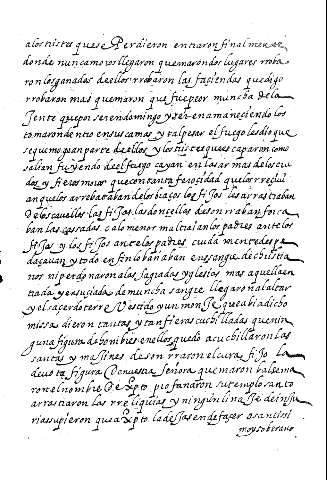 alostristes que se Perdieron entraron finalmente
donde nunca moros llegaron quemaron dos lugares rroba
ron los ganados dellos rrobaron las faziendas que digo
rrobaron mas quemaron que fue peor mucha dela
Jente que por ser en domingo y ser en amaneciendo los
tomaron de nrio en sus camas y tal pena el fuego les dio que
se quemo gran parte dellos y los tristes que se escaparon como
salian fuyendo del fuego cayan en las armas delos cru
dos y fieros moros que con tanta ferocidad que los rrecivi
an que los arrebataban delos braços los fiJos les arrastraban
Delos cavellos las fiJas las donsellas desonrraban força
ban las cassadas calo menor maltraian los padres ante los
fiJos y los fiJos ante los padres cuida mente despe
daçauan y todo en fin lo bañaban en sangre de christia
nos ni perdonaron alas sagradas yglesias mas aquella en
trada y ensuziada de mucha sangre llegaron al altar
y el sacerdote rre Vestido y un monJe que ubia dicho
missa dieron tantas y tan fieras cuchilladas que nin
guna figura de hombres en ellos quedo acuchillaron las
santas ymaJines desonrraron el cura fiJo la
devota figura De nuestra Señora quemaron balsema
ron el nombre De Xpto profanaron su templo santo
arrastraron las rreliquias y ningun linaJe de inJu
rias supieron que a Xpto la dexasen de fazer o santissi
mo y soberano